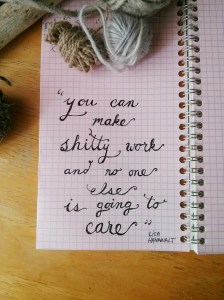 "you can
make
shitty work
and no one
else
is going to
care"
LISA
HANAWALT